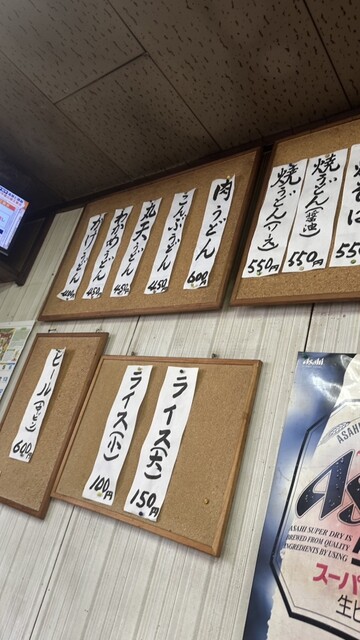 焼うどん(ソース)
550円
焼うどん(醤油)
550円
550円
肉うどん
600円
こんぶうどん
450
丸天うどん
450円
わかめうどん
450円
かけうどん
ライス(大)
150円
ライス(小)
100円
ビール(中ビン)
600円
Asahi
ASAHI
ASAHI SUPER DRY IS
BREWED FROM QUALITY
INGREDIENTS BY USING
スーパ
生ビ